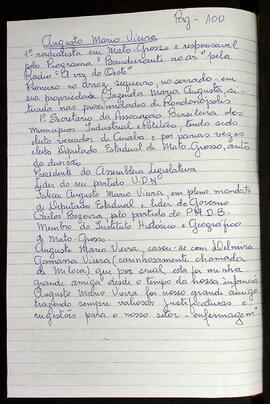 Pág - 100
Augusto Mario Vieira
1º radialista em Mato Grosso e responsável
pelo Programa "Bandeirante no ar" pela
Rádio "A voz do Oeste"
Pioneiro no arroz sequeiro, no serrado em
sua propriedade Fazenda Maria Augusta, si-
tuada nas proximidades de Rondonópolis
1º Secretario da Associação Brasileira dos
Municípios Industrial e político, tendo sido
eleito vereador de Cuiabá e por várias vezes
eleito Deputado Estadual de Mato Grosso, antes
da divisão
Presidente da Assembleia Legislativa
Lider do seu partido U.D.N.
Faleceu Augusto Mario Vieira, em pleno mandato
de Deputado Estadual e lider do Governo
Carlos Bezerra pelo partido do P.M.D.B.
Membro do Instituto Histórico e Geográfico
de Mato Grosso.
Augusto Mario Vieira, casou-se com Delmira
Gamarra Vieira (carinhosamente chamada
de Miloca) que por sinal esta foi minha
grande amiga desde o tempo da nossa infância
Augusto Mario Vieira foi nosso grande amigo
trazendo sempre valiosas justificativas e
sugestões para o nosso setor - enfermagem